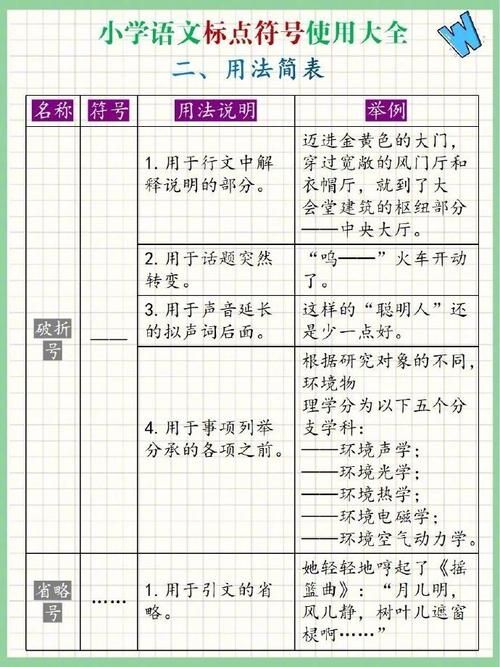 小学语文标点符号使用大全
W
二、用法简表
名称 符号 用法说明 举例
破折号
——
1. 用于行文中解
释说明的部分。
迈进金黄色的大门，
穿过宽敞的风门厅和
衣帽厅，就到了大
会堂建筑的枢纽部分
——中央大厅。
2. 用于话题突然
转变。
“呜——”火车开动
了。
3. 用于声音延长
的拟声词后面。
这样的“聪明人”还
是少一点好。
4. 用于事项列举
分承的各项之前。
根据研究对象的不同，
环境物
理学分为以下五个分
支学科：
——环境声学；
——环境光学；
——环境热学；
——环境电磁学；
——环境空气动力学。
省略号
……
1. 用于引文的省
略。
她轻轻地哼起了《摇
篮曲》：“月儿明，
风儿静，树叶儿遮窗
棂啊……”